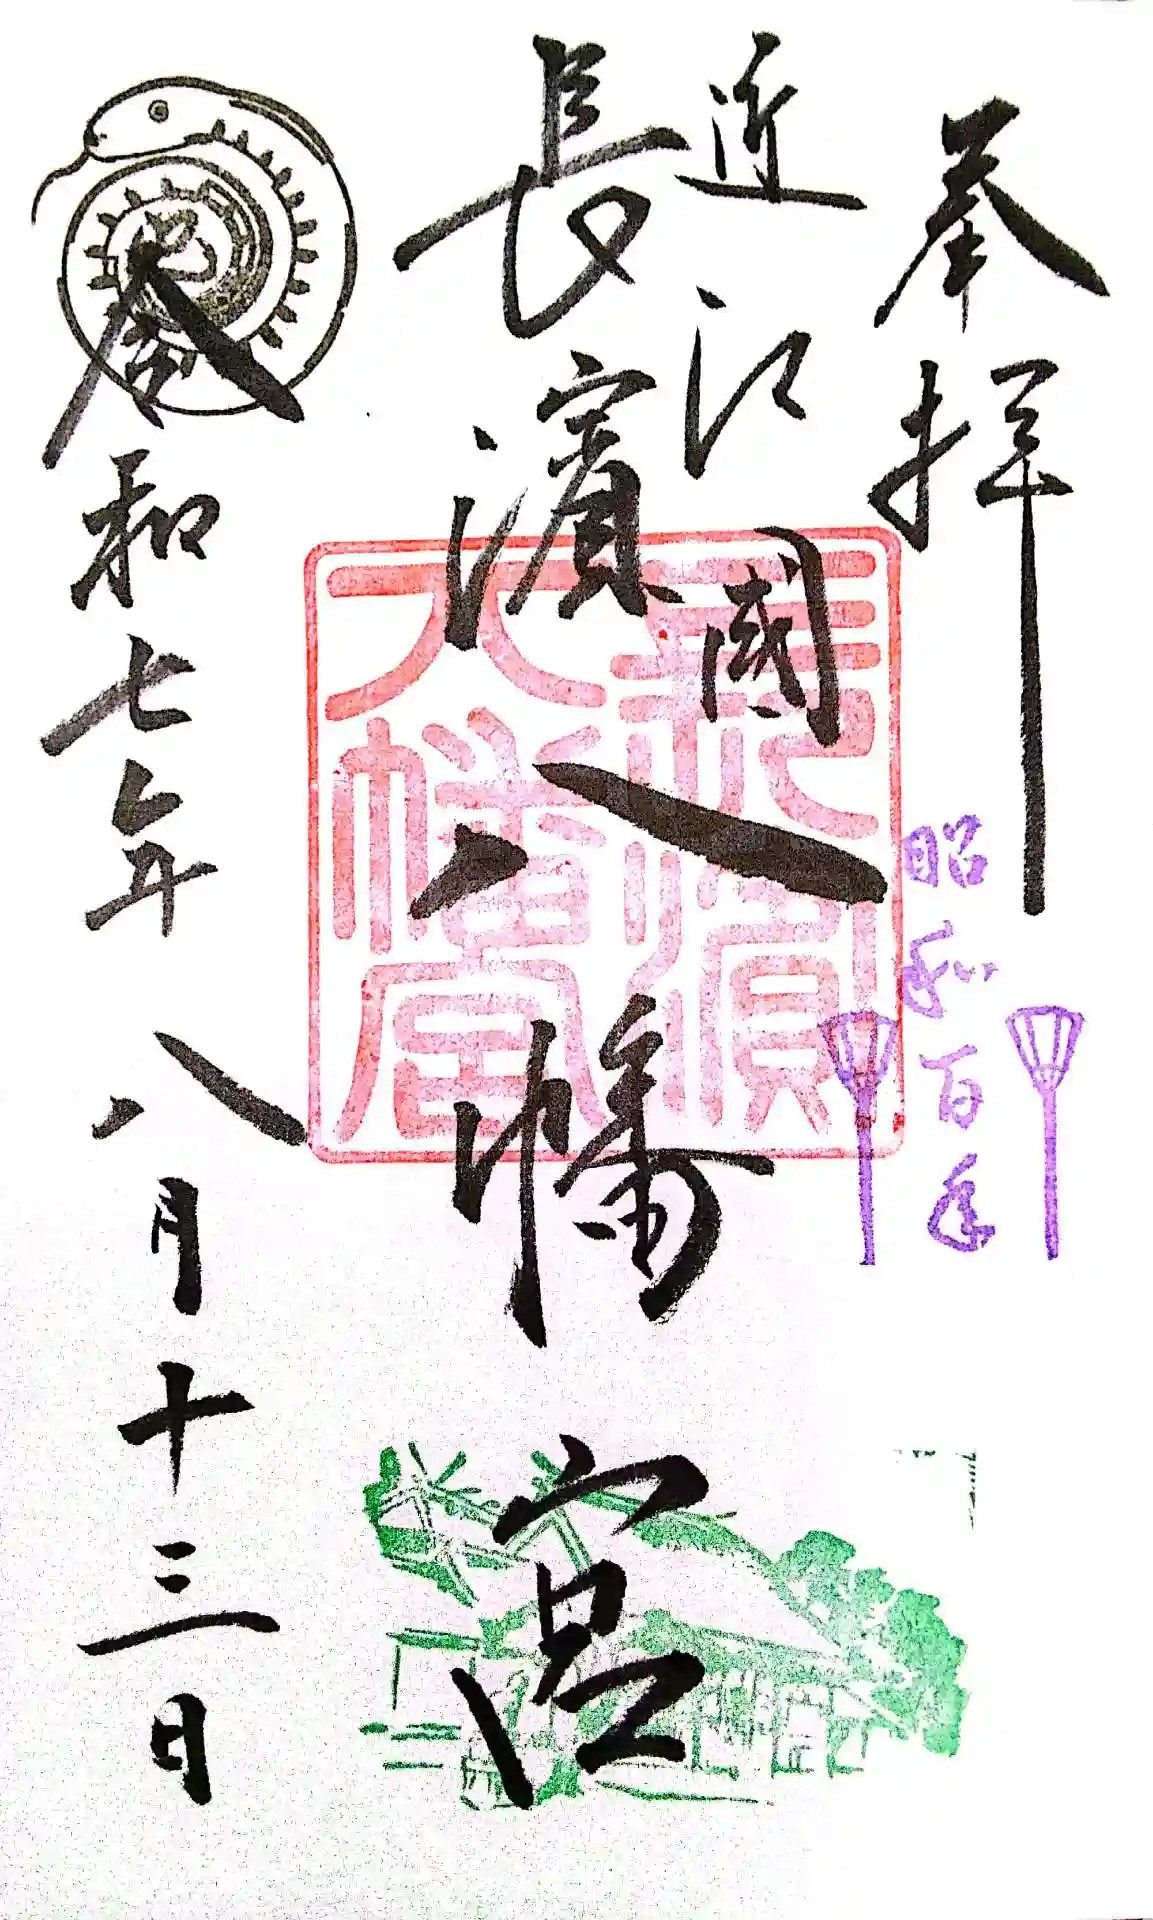 奉拝
近江國
長濱八幡宮
令和七年八月十三日
昭和百年
長濱
八幡宮
巳